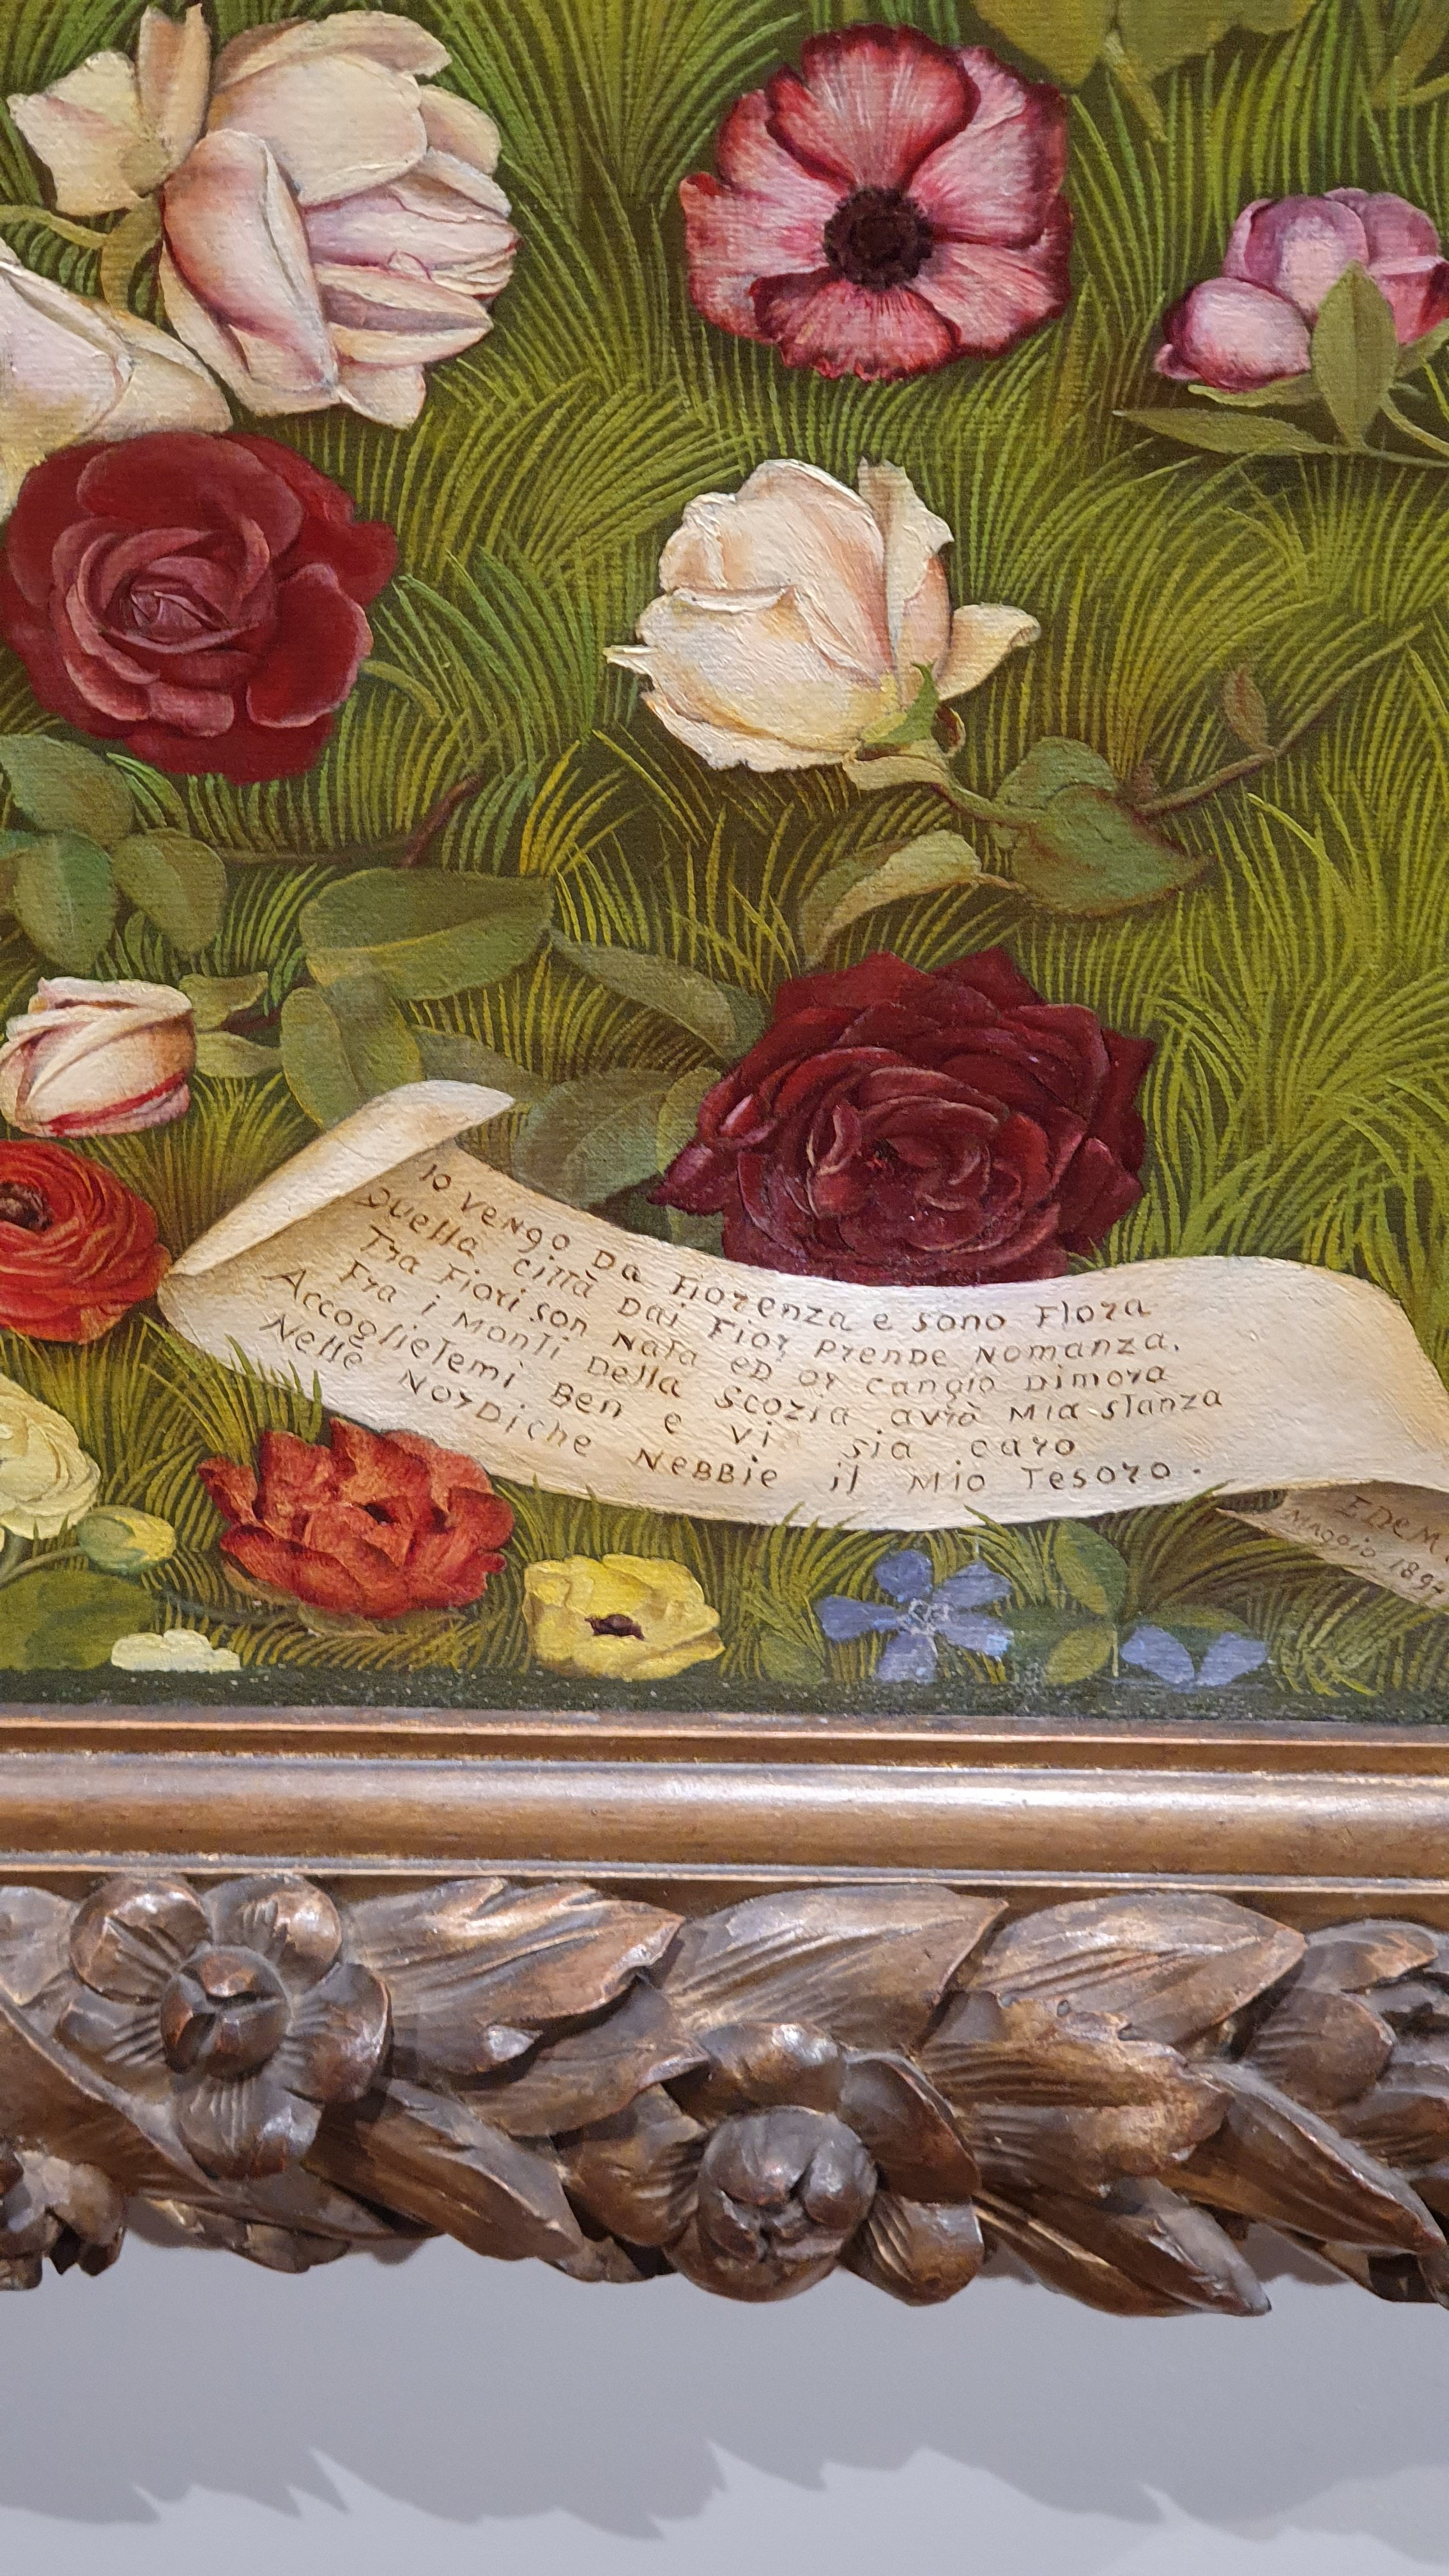 Io vengo da Fiorenza e sono Flora
Quella città dai fior prende nomanza.
Tra fiori son nata ed or cangio dimora
Fra i monti della Scozia avrò mia stanza
Accoglietemi ben e vi sia caro
Nelle nordiche nebbie il mio tesoro.
EDEM
Maggio 1894